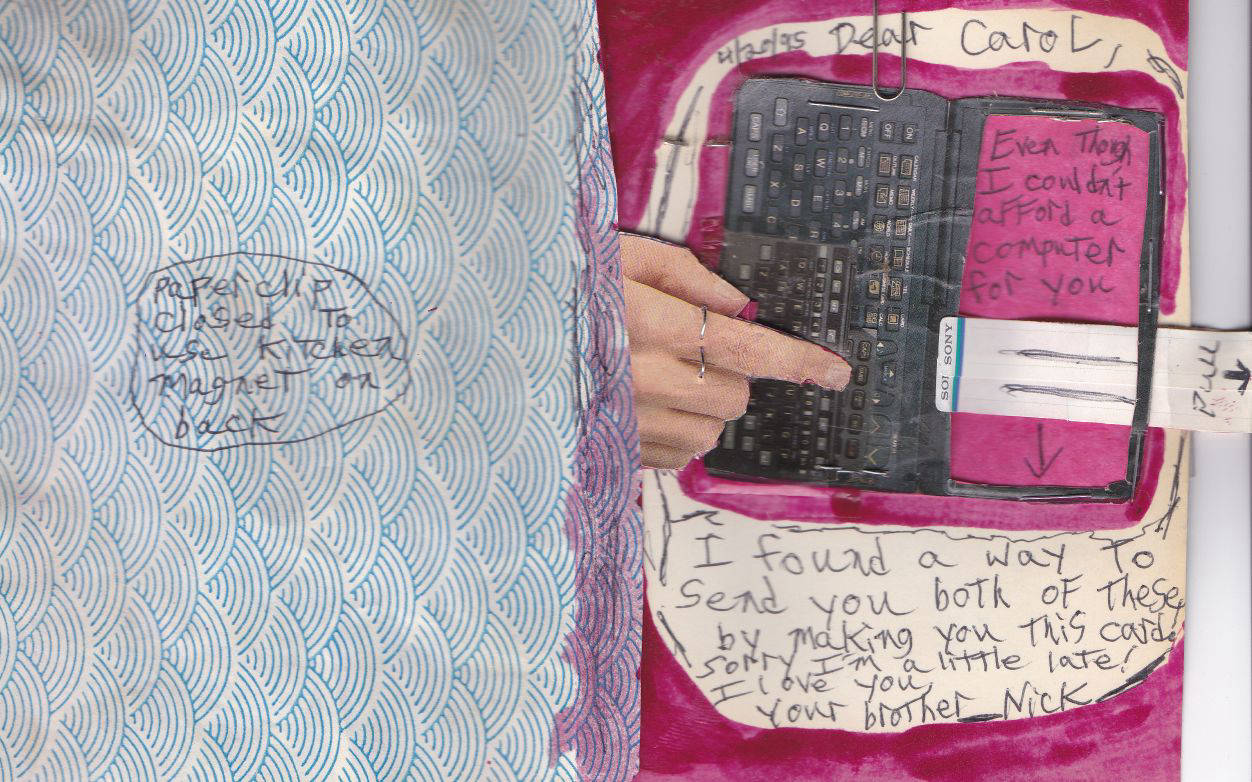 paperclip
closed To
use kitchen
magnet on
back
4/20/95 Dear Carol,
Even Though
I couldn't
afford a
computer
for you
SONY
SO
Pull
I found a way To
Send you both of These
by making you This card.
sorry I'm a little late!
I love you,
your brother Nick
ON
OFF
CAPS
A
Q
1
Z
S
W
2
X
D
E
3
C
4
R